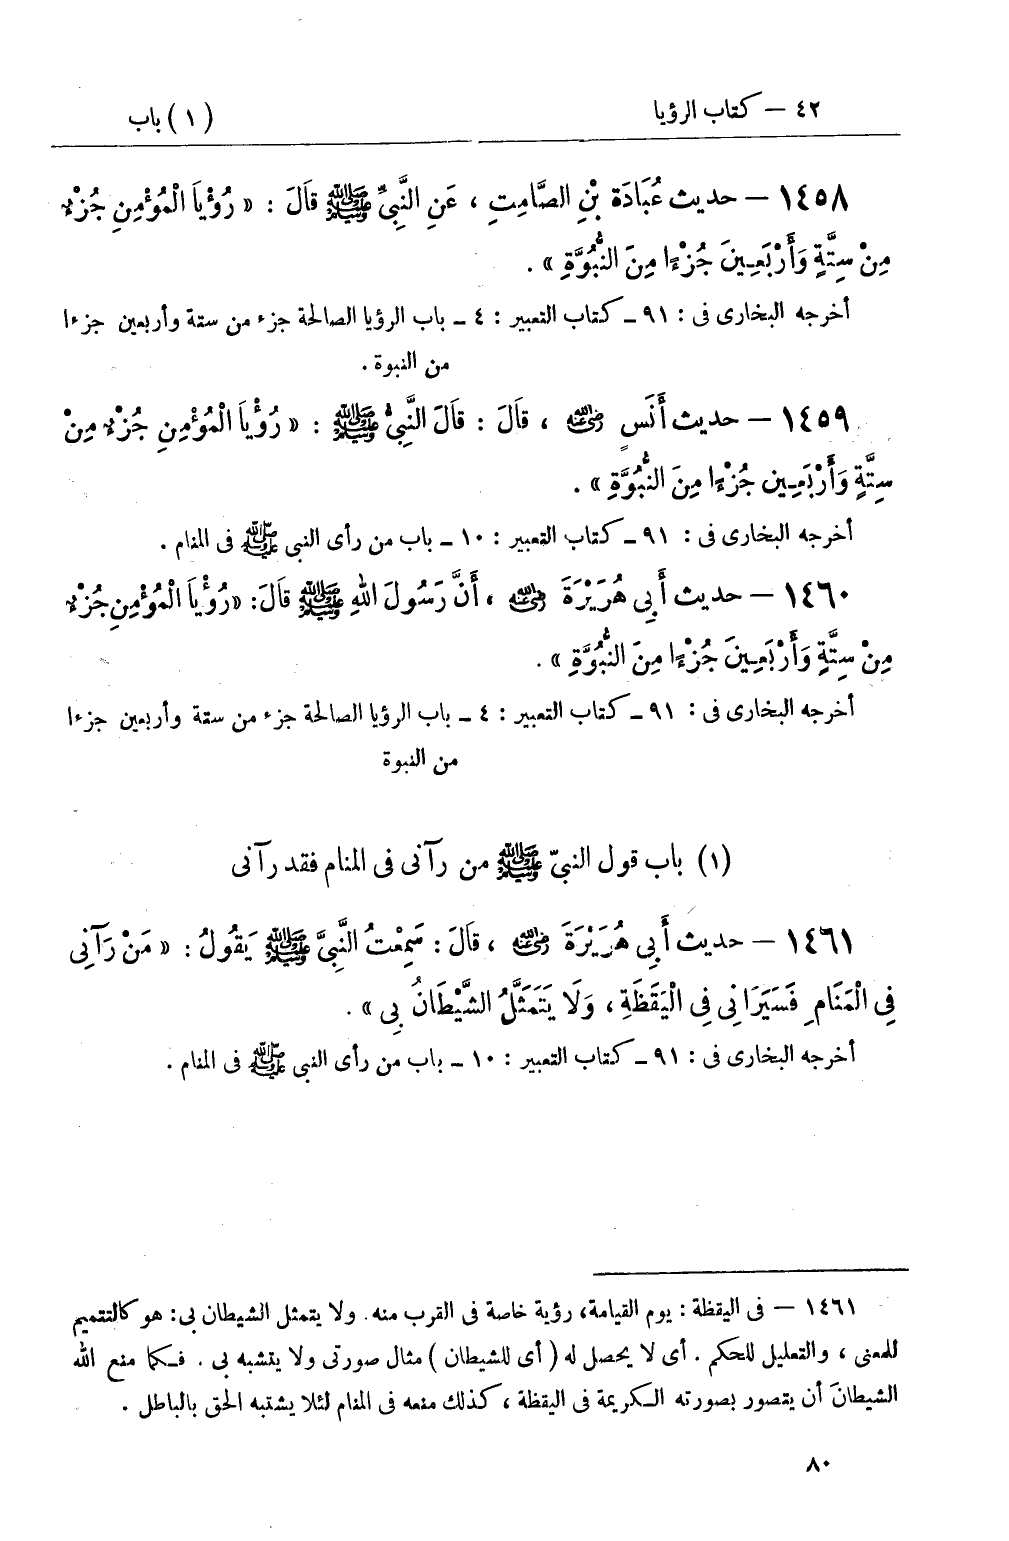 ٤٢ — كتاب الرؤيا
(١) باب
١٤٥٨ — حديث عُبَادَة بْنِ الصَّامِتِ ، عَنِ النَّبِيِّ ﷺ قَالَ : « رُؤْيَا الْمُؤْمِنِ جُزْءٌ
مِنْ سِتَّةٍ وَأَرْبَعِينَ جُزْءًا مِنَ النُّبُوَّةِ » .
أخرجه البخارى فى : ٩١ ـ كتاب التعبير : ٤ ـ باب الرؤيا الصالحة جزء من ستة وأربعين جزءا
من النبوة .
١٤٥٩ — حديث أَنَسٍ رضي الله عنه ، قَالَ : قَالَ النَّبِيُّ ﷺ : « رُؤْيَا الْمُؤْمِنِ جُزْءٌ مِنْ
سِتَّةٍ وَأَرْبَعِين جُزْءًا مِنَ النُّبُوَّةِ » .
أخرجه البخارى فى : ٩١ ـ كتاب التعبير : ١٠ ـ باب من رأى النبى ﷺ فى المنام .
١٤٦٠ — حديث أَبِى هُرَيْرَةَ رضي الله عنه ، أَنَّ رَسُولَ اللهِ ﷺ قَالَ: «رُؤْيَا الْمُؤْمِنِ جُزْءٌ
مِنْ سِتَّةٍ وَأَرْبَعِينَ جُزْءًا مِنَ النُّبُوَّةِ » .
أخرجه البخارى فى : ٩١ ـ كتاب التعبير : ٤ ـ باب الرؤيا الصالحة جزء من ستة وأربعين جزءا
من النبوة
(١) باب قول النبىّ ﷺ من رآنى فى المنام فقد رآنى
١٤٦١ — حديث أَبِى هُرَيْرَةَ رضي الله عنه ، قَالَ : سَمِعْتُ النَّبِىَّ ﷺ يَقُولُ : « مَنْ رَآنِى
فِى الْمَنَامِ فَسَيَرَانِى فِى الْيَقَظَةِ ، وَلَا يَتَمَثَّلُ الشَّيْطَانُ بِى » .
أخرجه البخارى فى : ٩١ ـ كتاب التعبير : ١٠ ـ باب من رأى النبى ﷺ فى المنام .
١٤٦١ — فى اليقظة : يوم القيامة، رؤية خاصة فى القرب منه. ولا يتمثل الشيطان بى: هو كالتتميم
للمعنى ، والتعليل للحكم . أى لا يحصل له ( أى للشيطان ) مثال صورتى ولا يتشبه بى . فكما منع الله
الشيطان أن يتصور بصورته الكريمة فى اليقظة ، كذلك منعه فى المنام لئلا يشتبه الحق بالباطل .
٨٠